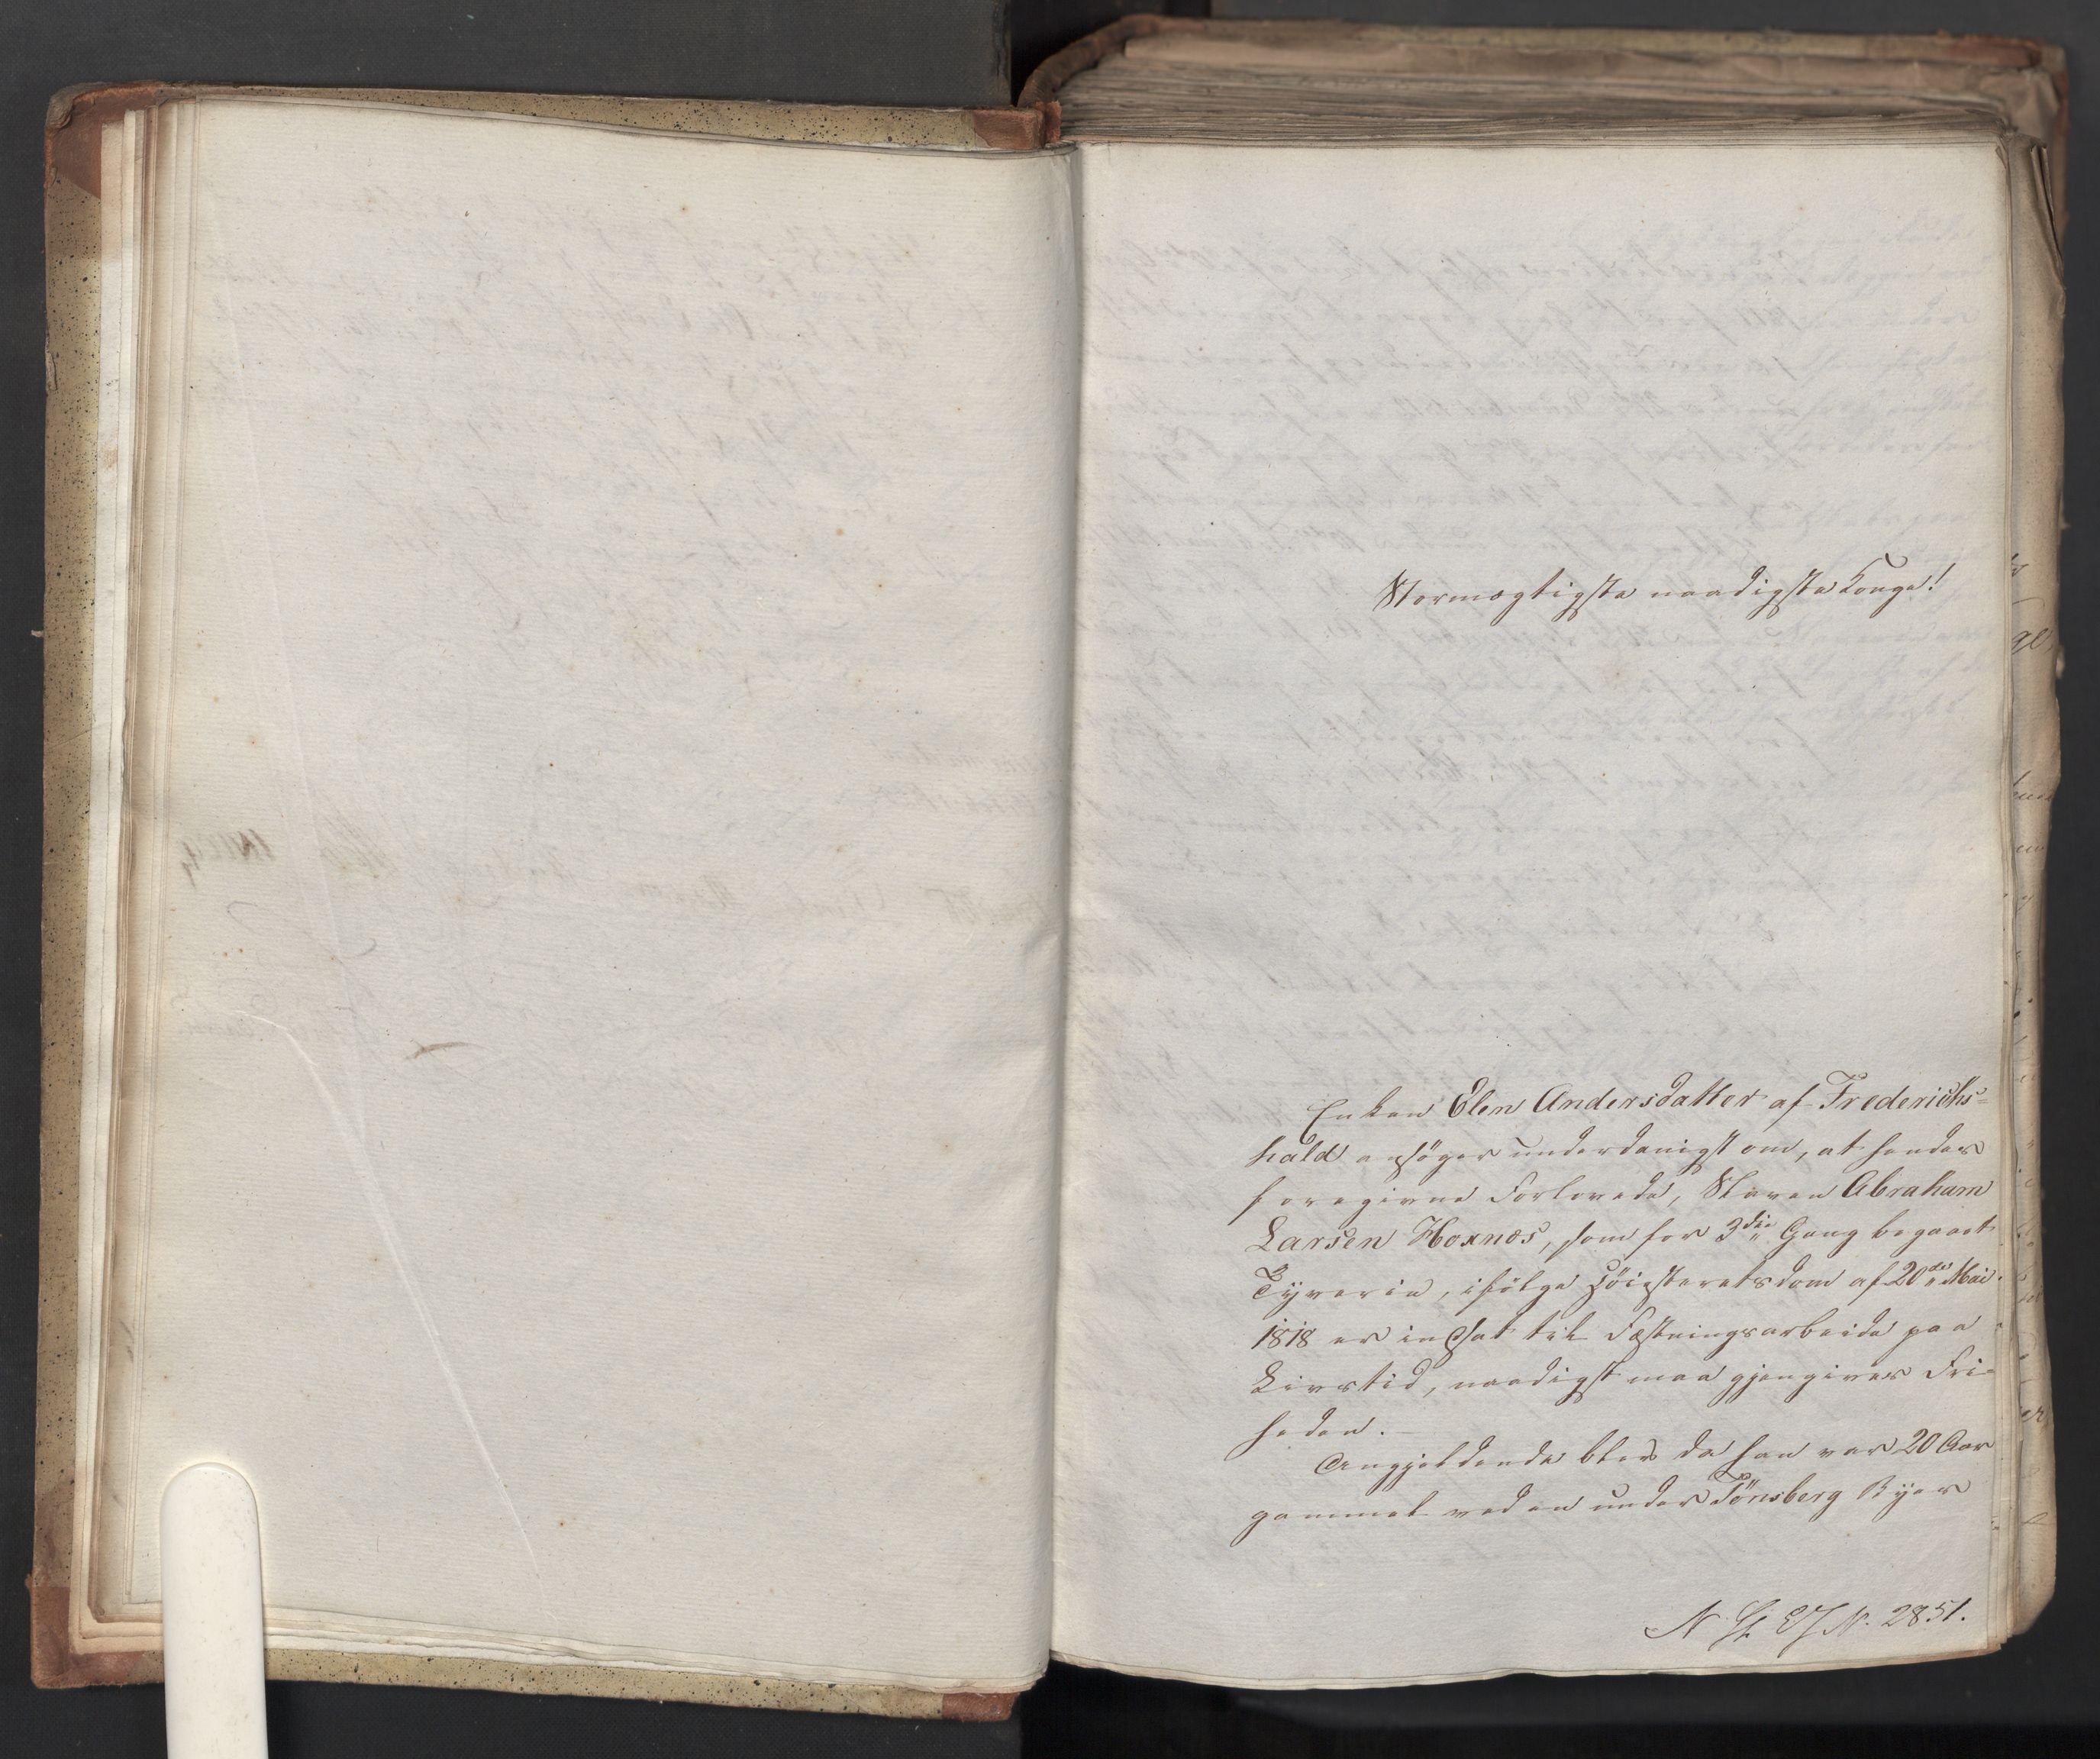 Stormægtigste naadigste Konge!
Enken Elen Andersdatter af Frederichs-
hald ansøger underdanigst om, at hendes
foregivne Forlovede, Slaven Abraham
Larsen Hoxnæs, som for 3die Gang begaaet
Tyverie, ifølge Høiesteretsdom af 20de Mai
1818 er indsat til Fæstningsarbeide paa
Livstid, naadigst maa gjengives Fri-
heden.
Angjeldende blev da han var 20 Aar
gammel ved en under Tönsberg Byes
N. 2851.